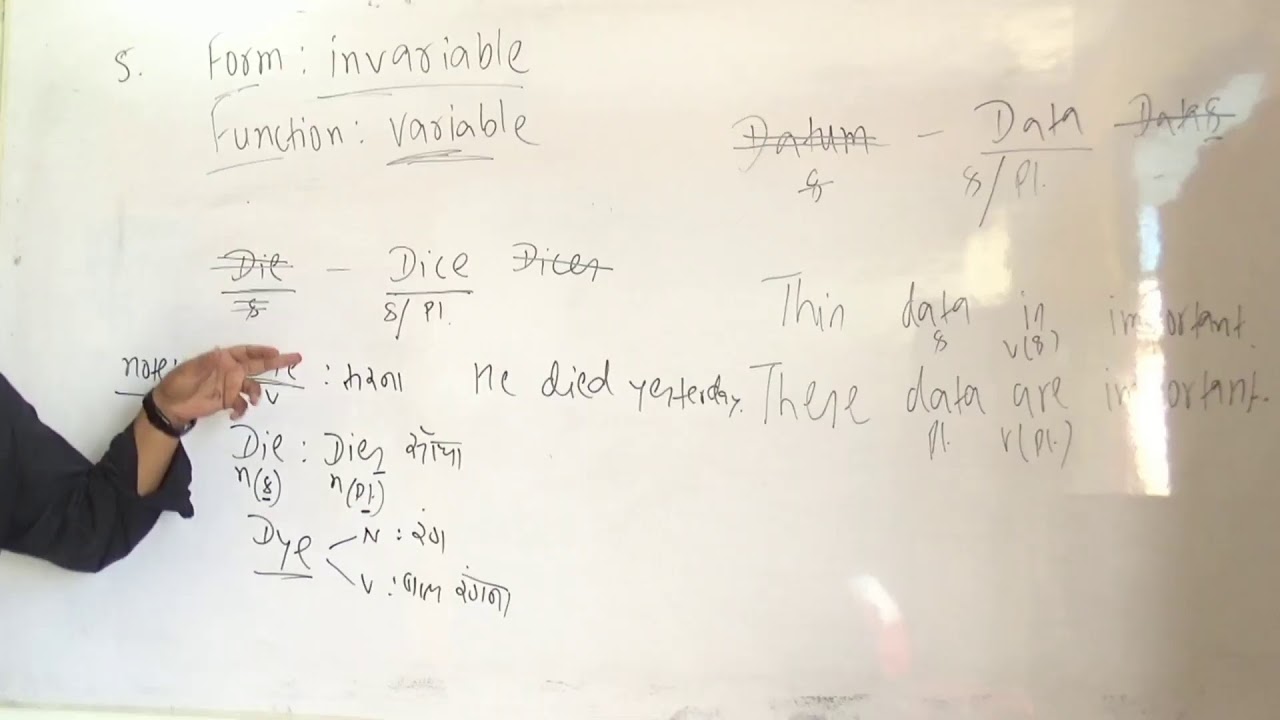 5. Form : invariable
Function : variable
Datum - Data Datas
s s/Pl.
Die - Dice Dices
s s/Pl.
This data is important.
s v(s)
note: : मरना He died yesterday.
v
These data are important.
Pl. v(Pl.)
Die : Dies साँचा
n(s) n(Pl.)
Dye N : रंग
v : बाल रंगना